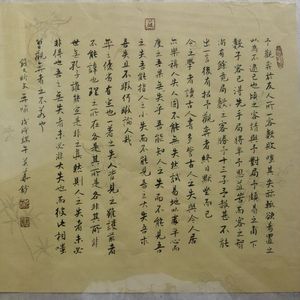 予觀弈於友人所一客數敗嗤其失算輒欲易置之
以為不逮己也頃之客請與予對局予頗易之甫下
數子客已得先手局將半予思益苦而客之智
尚有餘竟局數之客勝予十三子予赧甚不能
出一言後有招予觀弈者終日默坐而已
今之學者讀古人書多訾古人之失與今人居
亦樂稱人失人固不能無失然試易地以處平心而
度之吾果無一失乎吾能知人之失而不能見吾
之失吾能指人之小失而不能見吾之大失吾求
吾失且不暇何暇論人哉
弈之優劣有定也一著之失人皆見之雖護前者
不能諱也理之所在各是其所是各非其所非
世無孔子誰能定是非之真然則人之失者未必
非得也吾之無失者未必非大失也而彼此相嗤
曾觀弈者之不若已
錢大昕文弈喻戊戌端午鈔